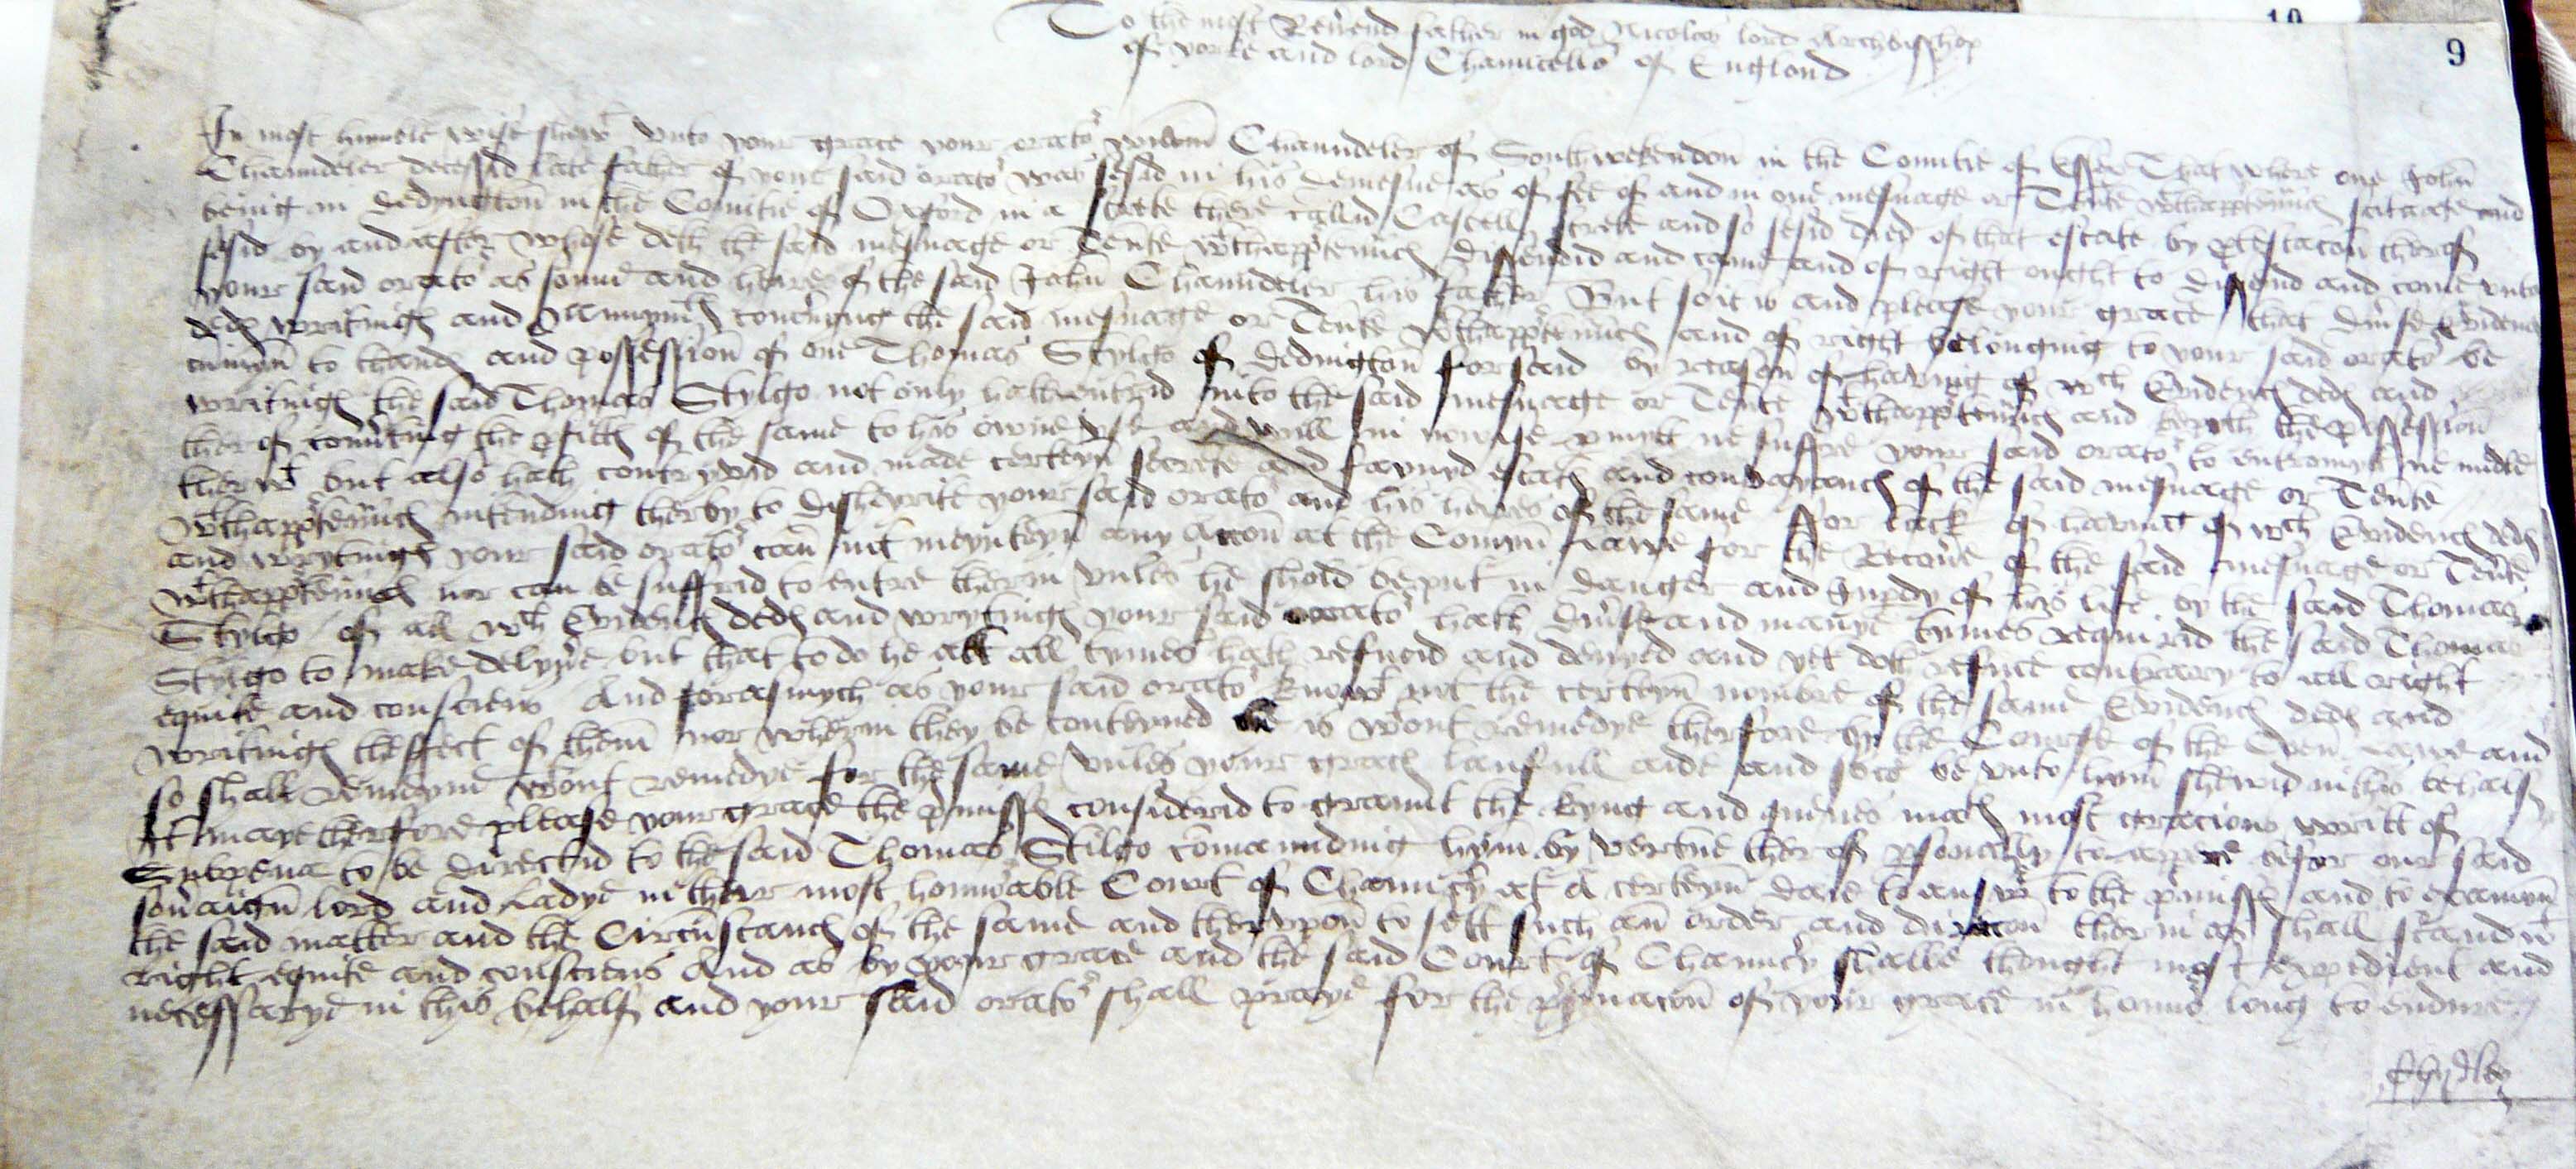 10
9
To the most Reverend father in god Nicolas lord Archbisshop
of yorke and lord Chauncello^r of England
In most humble wise shew^t unto your grace your orato^r Willym Chaundeler of Southwekendon in the Countie of Essex That where one John
Chaundeler decessid late father of your said orato^r was sesid in his demesne as of fee of and in one mesuage or Tente w^thapp^rten^ncs sytuate and
being in Dedyngton in the Countie of Oxford in a strete there callid Castell strete and so sesid died of that estate by p^rtestacon therof
sesid by and after whose deth the said mesuage or Tente w^thapp^rten^ncs dissendid and came and of right ought to dissend and come unto
your said orato^r as sonne and heire of the said John Chaundeler his father But so it is and please your grace that div^rse Evidencs
deds writings and Mynyments concernyng the said mesuage or Tente w^thapp^rten^ncs and of right belonging to your said orato^r be
cumyn to thands and possession of one Thomas Stylgo of Dedington forsaid by reason of having of w^ch Evidencs deds and
writings the said Thomas Stylgo not only hath entrid into the said mesuage or Tente w^thapp^rten^ncs and kepyth the possession
therof conv^rting the p^rfitts of the same to his owne use and will in nowise p^rmytt ne suffre your said orato^r to entromytt ne medle
therw^t but also hath contryvid and made certeyn secrete and faynyd estats and convayancs of the said mesuage or Tente
w^thapp^rten^ncs intending therby to disheyrite your said orato^r and his heires of the same ffor lack of having of w^ch Evidencs deds
and wrytings your said orato^r can not meynteyn any Accon at the Comyn Lawe for the Recov^re of the said mesuage or Tente
w^thapp^rten^ncs nor can be suffrid to entre therin unles he shold be put in danger and Jup^rdy of his life by the said Thomas
Stylgo of all w^ch Evidencs deds and wrytings your said orato^r hath div^rse and manye tymes requirid the said Thomas
Stylgo to make delyv^re but that to do he att all tymes hath refusid and denyed and yet doth refuse contrary to all right
equite and consciens And forasmych as your said orato^r know^t not the certeyn nombre of the same Evidencs deds and
writings theffect of them nor wherin they be conteyned he is w^tout remedye therfore by the Course of the Comen Lawe and
so shall remayne w^tout remedye for the same unles your gracs laufull aide and socor be unto hym shewid in this behalf
It maye therfore please your grace the p^rmisses considerid to graunt the kyng and quenes mats most gracious writt of
Subpena to be directid to the said Thomas Stilgo comaunding hym by vertue therof p^rsonally to appere befor our said
sov^raign lord and Ladye in their most honorable Court of Chauncery at a certeyn daie to answ^r to the p^rmisses and to examyn
the said matter and the Circumstancs of the same and therupon to sett such an order and direccon therin as shall stand w^t
right equite and consciens And as by your grace and the said Court of Chauncery shalbe thought most expedient and
necessarye in this behalf and your said orato^r shall praye for the p^rs^rvacon of your grace in hono^r long to endure